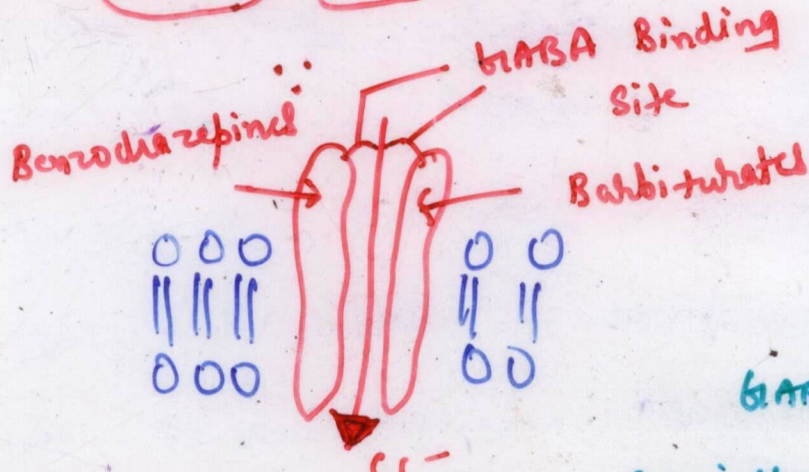 GABA Binding
Site
Benzodiazepines
Barbiturates
Cl-